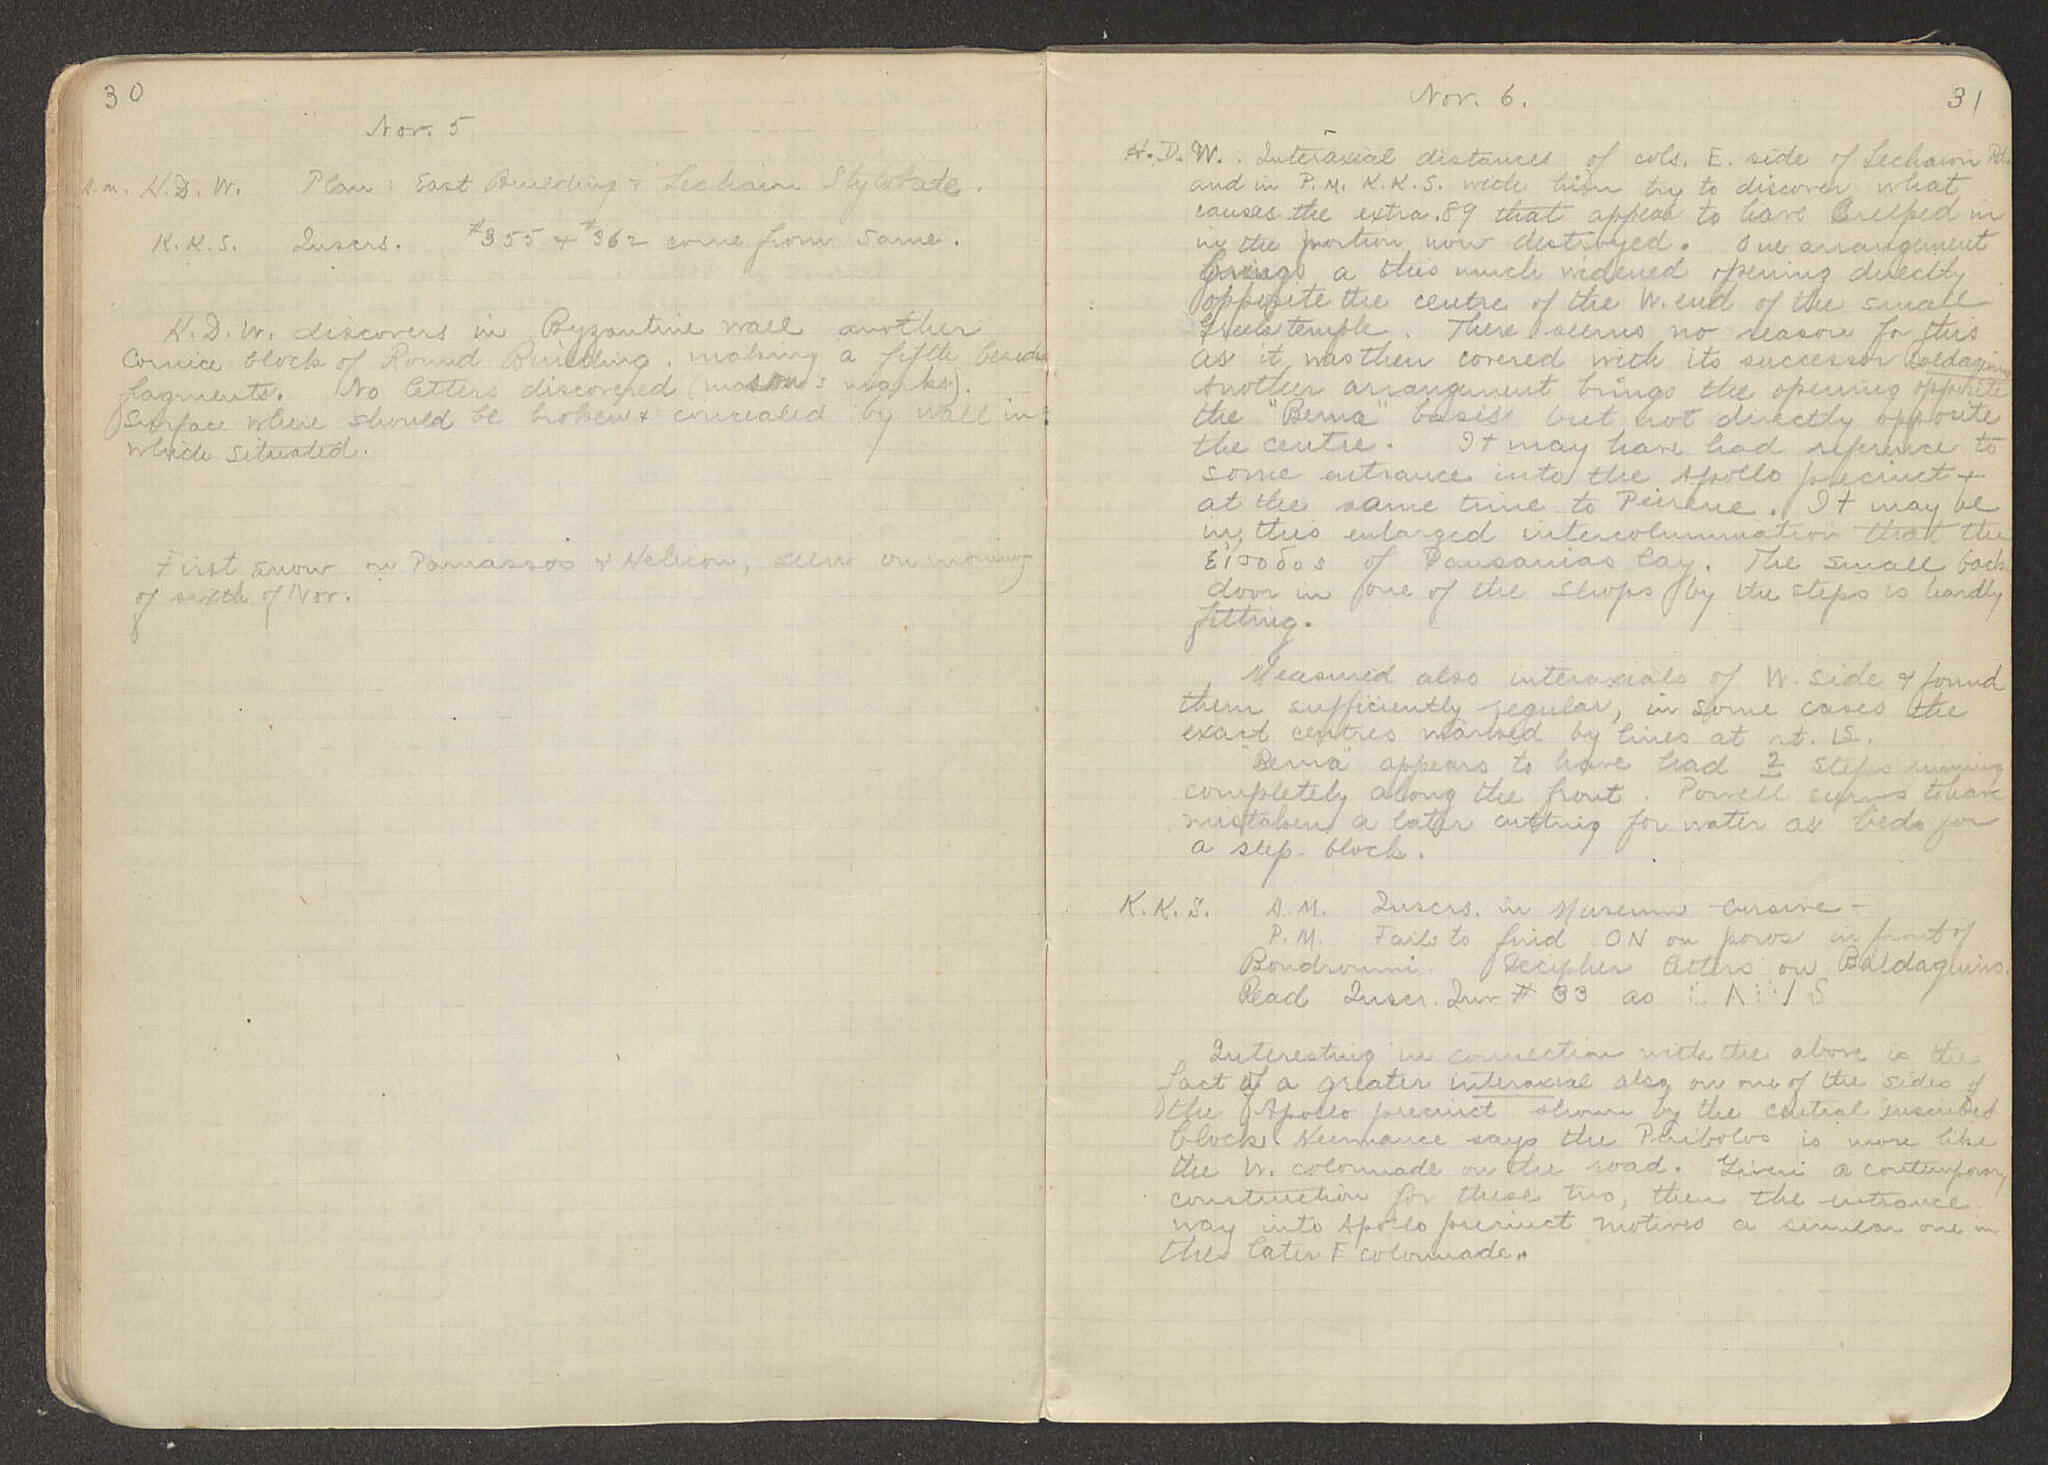 30
Nov. 5
A.M. H.D.W. Plan: East Building & Lechaion Stylobate.
K.K.S. Inscrs. #355 + #362 come from same.
H.D.W. discovers in Byzantine wall another
cornice block of Round Building, making a fifth besides
fragments. No letters discovered (mason's marks).
Surface where should be broken & concealed by wall in
which situated.
First snow on Parnassos & Helicon, seen on morning
of sixth of Nov.
Nov. 6.
31
H.D.W. Interaxial distances of cols. E. side of Lechaion Rd.
and in P.M. K.K.S. with him try to discover what
causes the extra .89 that appear to have creeped in
in the portion now destroyed. One arrangement
brings a this much widened opening directly
opposite the centre of the W. end of the small
Greek temple. There seems no reason for this
as it was then covered with its successor
Another arrangement brings the opening opposite
the "Bema" basis but not directly opposite
the centre. It may have had reference to
some entrance into the Apollo precinct +
at the same time to Peirene. It may be
in this enlarged intercolumniation that the
ἔισοδος of Pausanias lay. The small back
door in one of the shops by the steps is hardly
fitting.
Measured also interaxials of W. side & found
them sufficiently regular, in some cases the
exact centres marked by lines at rt. ∟s.
"Bema" appears to have had 2 steps running
completely along the front. Powell seems to have
mistaken a later cutting for water as beds for
a step block.
K.K.S. A.M. Inscrs. in Museum - cursive -
P.M. Fails to find ON on poros in front of
Boudroumi. Decipher letters on Baldaquins.
Read Inscr. Inv # 33 as
Interesting in connection with the above is the
fact of a greater interaxial also on one of the sides of
the Apollo precinct shown by the central inscribed
block. Hermance says the Peribolos is more like
the W. colonnade on the road. Given a contemporary
construction for these two, then the entrance
way into Apollo precinct motives a similar one in
the later E colonnade.